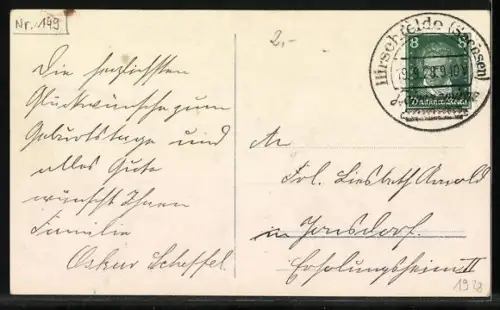 Nr. 149
2,-
Hirschfelde (Sachsen)
8
Deutsches Reich
Die herzlichsten
Glückwünsche zum
Geburtstage und
alles Gute
wünscht Ihnen
Familie
Oskar Scheffel.
An
Frl. Liesbeth Arnold
in Jonsdorf.
Erholungsheim II
1928